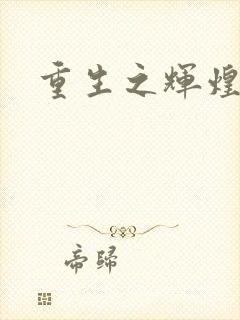 重生之輝煌
帝歸